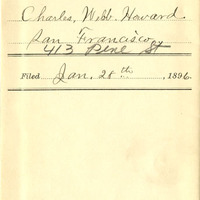 Charles, Webb. Howard
San Francisco
413 Pine St
Filed Jan. 28th, 1896